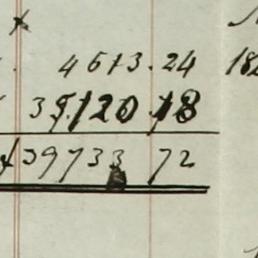 x
4613.24
35120 48
39733 72